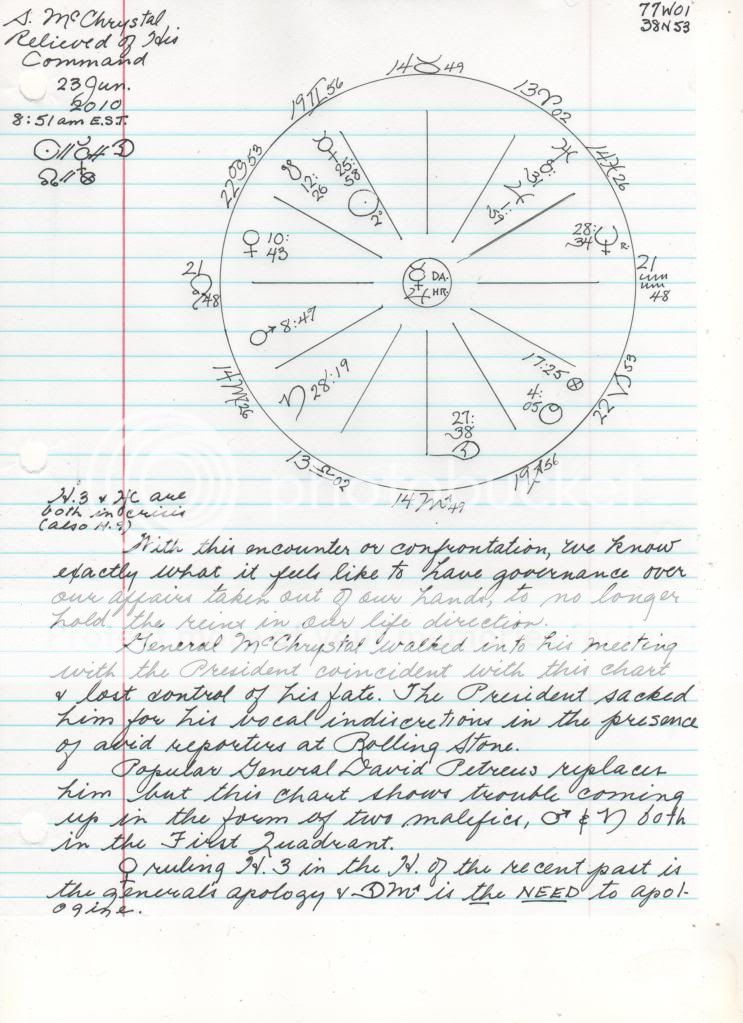 S. McChrystal
Relieved of His
Command
23 Jun.
2010
8:51am E.S.T.
☉∥☿⋕☽
☊∥⊗
77W01
38N53
14 ♉ 49
13 ♈ 02
14 ♓ 26
21 ♒ 48
22 ♑ 53
19 ♐ 56
14 ♏ 49
13 ♎ 02
14 ♍ 26
21 ♌ 48
22 ♋ 53
19 ♊ 56
☿ 25:
☉ 2°
12:26
♀ 10:43
♂ 8:47
♄ 28:19
☽ 27:38
4:05
17:25 ⊗
28:34 R.
♃
☿ DA.
♃ HR.
H.3 & MC are
both in crisis
(also H.9)
With this encounter or confrontation, we know
exactly what it feels like to have governance over
our affairs taken out of our hands, to no longer
hold the reins in our life direction.
General McChrystal walked into his meeting
with the President coincident with this chart
& lost control of his fate. The President sacked
him for his vocal indiscretions in the presence
of avid reporters at Rolling Stone.
Popular General David Petreus replaces
him but this chart shows trouble coming
up in the form of two malefics, ♂ & ♄ both
in the First Quadrant.
♀ ruling H.3 in the H. of the recent past is
the generals apology & ☽ ♏ is the NEED to apol-
ogize.
photobucket